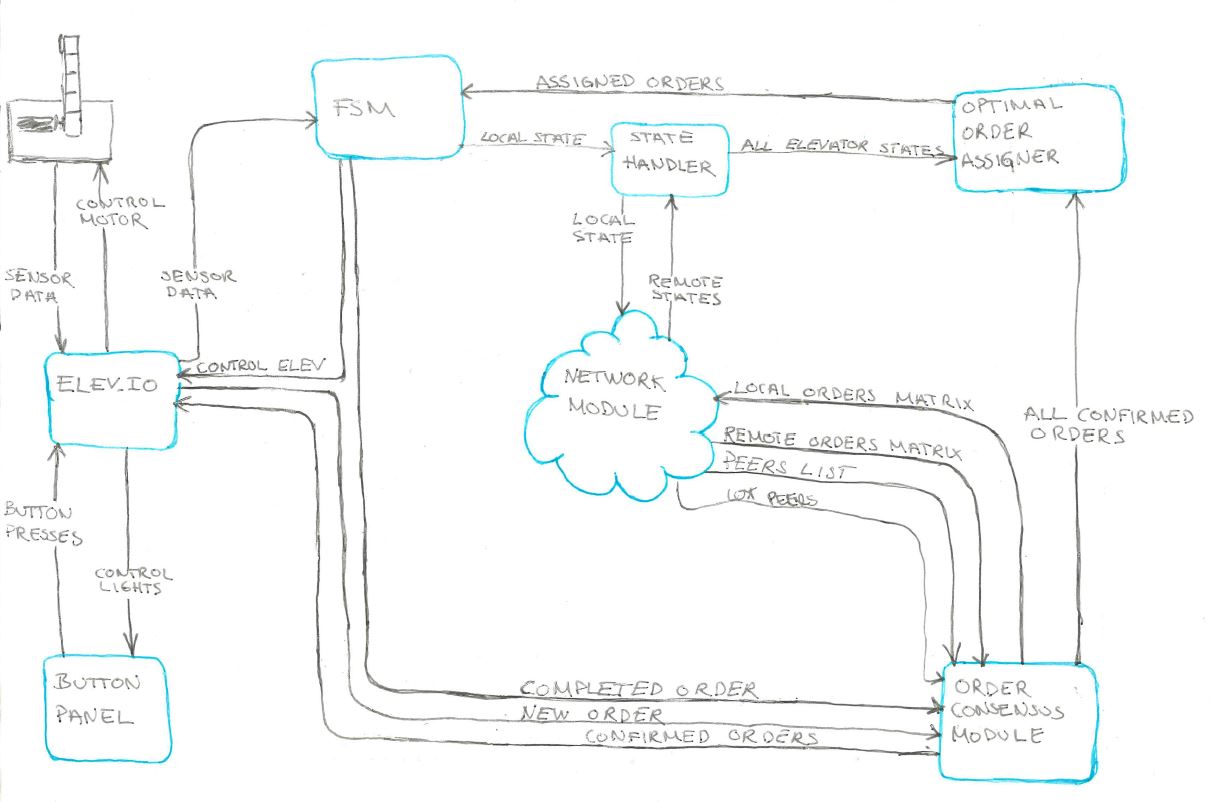 ASSIGNED ORDERS
FSM
OPTIMAL
ORDER
ASSIGNER
LOCAL STATE
STATE
HANDLER
ALL ELEVATOR STATES
CONTROL
MOTOR
LOCAL
STATE
SENSOR
DATA
SENSOR
DATA
REMOTE
STATES
CONTROL ELEV
ELEV.IO
NETWORK
MODULE
LOCAL ORDERS MATRIX
ALL CONFIRMED
ORDERS
REMOTE ORDERS MATRIX
PEERS LIST
PEERS
BUTTON
PRESSES
CONTROL
LIGHTS
BUTTON
PANEL
COMPLETED ORDER
NEW ORDER
CONFIRMED ORDERS
ORDER
CONSENSUS
MODULE